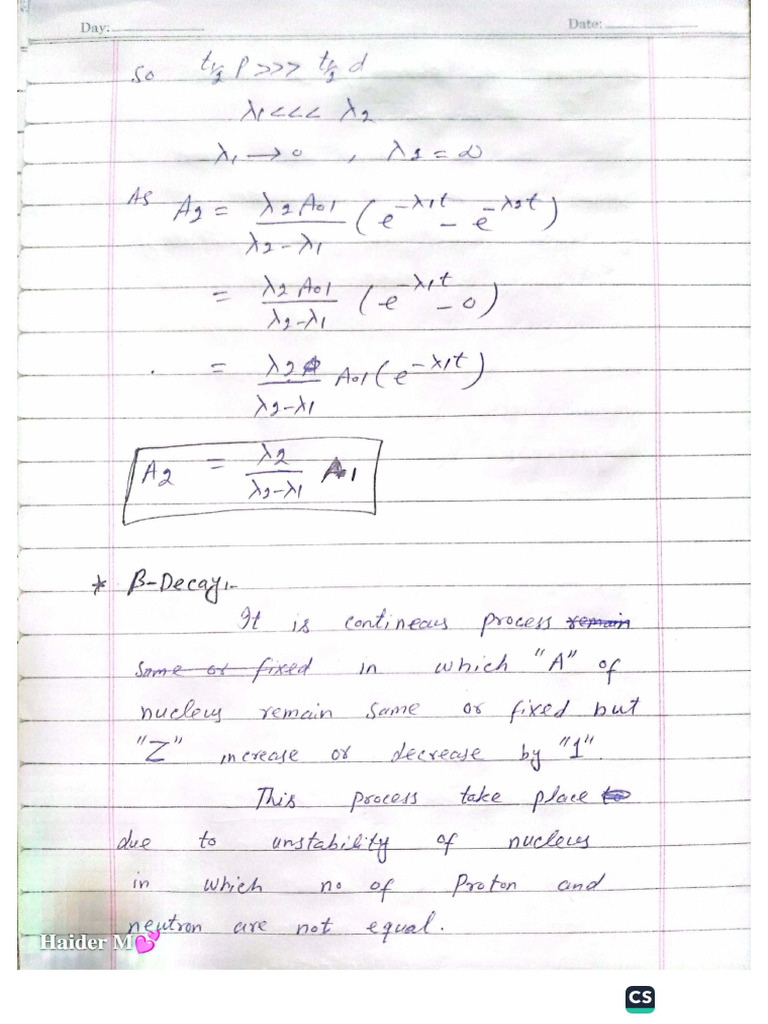 Day: Date:
So t½ P >>> t½ d
λ1 <<< λ2
λ1 → 0 , λ2 = ∞
As A2 = λ2 A01 / λ2 - λ1 (e^-λ1t - e^-λ2t)
= λ2 A01 / λ2 - λ1 (e^-λ1t - 0)
. = λ2 / λ2 - λ1 A01 (e^-λ1t)
A2 = λ2 / λ2 - λ1 A1
* β-Decay:-
It is contineous process remain
same or fixed in which "A" of
nucleus remain same or fixed but
"Z" increase or decrease by "1".
This process take place to
due to unstability of nucleus
in which no of Proton and
neutron are not equal.
Haider M💕
CS